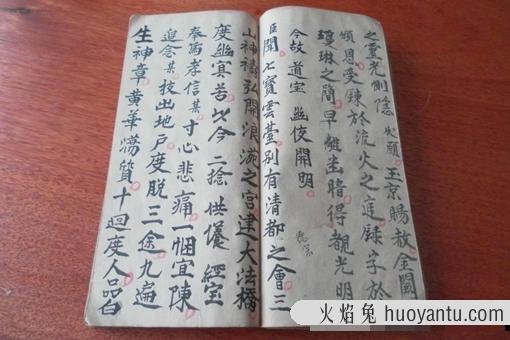 之靈光惻隱 伏願 玉京賜赦金闕
頒恩受鍊於流火之庭錄字於
璚琳之簡早離幽暗得覩光明
今故道宝幽伎開明
臣聞七宝雲臺別有清都之會三
山神禱弘開浪苑之宮津大法橋
度幽冥苦爻今二捻供儀經宝
奉為孝信某寸心悲痛一悃宜陳
追念某技出地戶度脱三途九遍
生神章黄華蕩質十迴度人品白
火焰兔 huoyantu.com